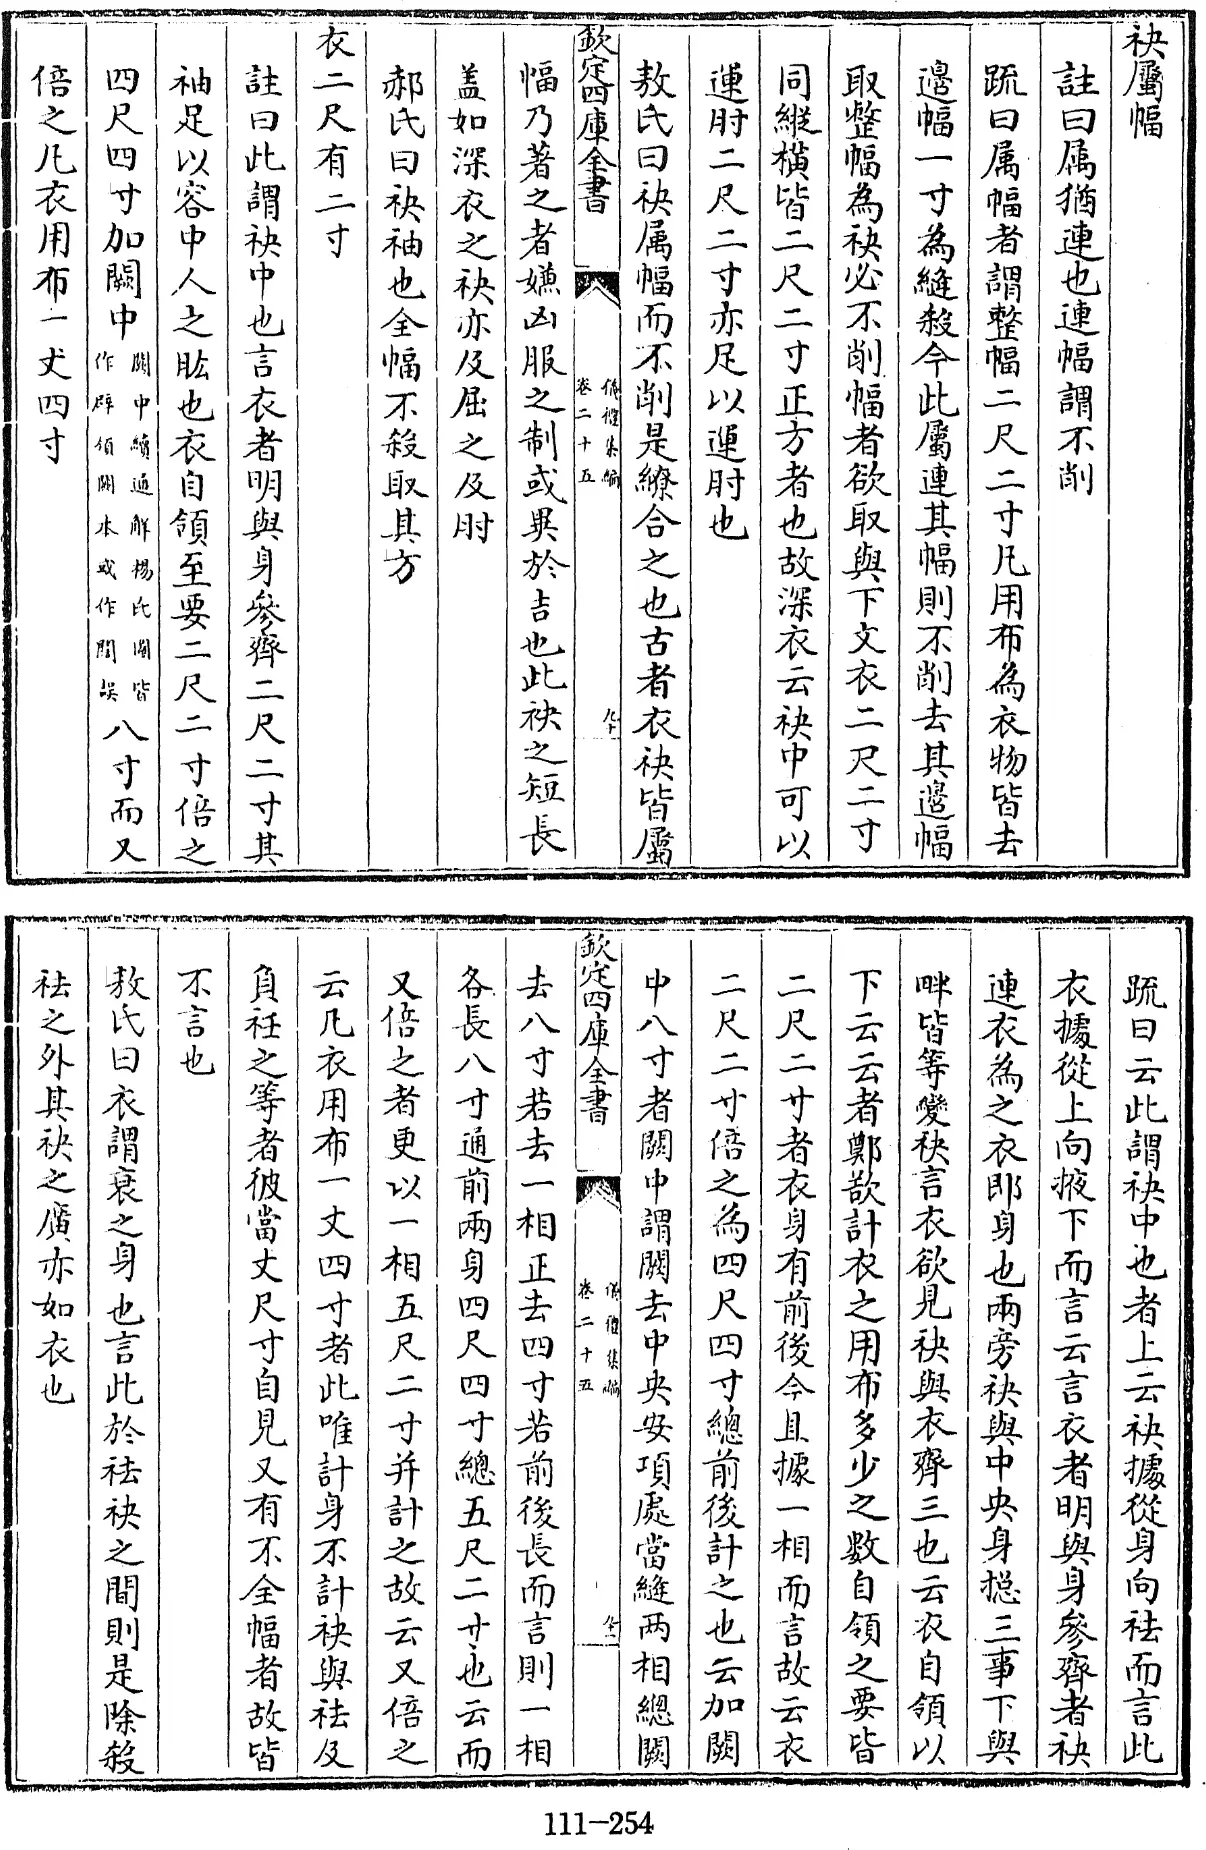 袂屬幅
註曰屬猶連也連幅謂不削
疏曰屬幅者謂整幅二尺二寸凡用布為衣物皆去
邊幅一寸為縫殺今此屬連其幅則不削去其邊幅
取整幅為袂必不削幅者欲取與下文衣二尺二寸
同縱橫皆二尺二寸正方者也故深衣云袂中可以
運肘二尺二寸亦足以運肘也
敖氏曰袂屬幅而不削是繚合之也古者衣袂皆屬
欽定四庫全書
儀禮集編
卷二十五
九十
幅乃著之者嫌凶服之制或異於吉也此袂之短長
盖如深衣之袂亦反屈之及肘
郝氏曰袂袖也全幅不殺取其方
衣二尺有二寸
註曰此謂袂中也言衣者明與身參齊二尺二寸其
袖足以容中人之肱也衣自領至要二尺二寸倍之
四尺四寸加闕中
闕中續通解楊氏圖皆
作辟領闕本或作闊誤
八寸而又
倍之凡衣用布一丈四寸
疏曰云此謂袂中也者上云袂據從身向袪而言此
衣據從上向掖下而言云言衣者明與身參齊者袂
連衣為之衣即身也兩旁袂與中央身揔三事下與
畔皆等變袂言衣欲見袂與衣齊三也云衣自領以
下云云者鄭欲計衣之用布多少之數自領之要皆
二尺二寸者衣身有前後今且據一相而言故云衣
二尺二寸倍之為四尺四寸總前後計之也云加闕
中八寸者闕中謂闕去中央安項處當縫两相總闕
欽定四庫全書
儀禮集編
卷二十五
九十一
去八寸若去一相正去四寸若前後長而言則一相
各長八寸通前兩身四尺四寸總五尺二寸也云而
又倍之者更以一相五尺二寸并計之故云又倍之
云凡衣用布一丈四寸者此唯計身不計袂與袪及
負衽之等者彼當丈尺寸自見又有不全幅者故皆
不言也
敖氏曰衣謂衰之身也言此於袪袂之間則是除殺
袪之外其袂之廣亦如衣也
111-254